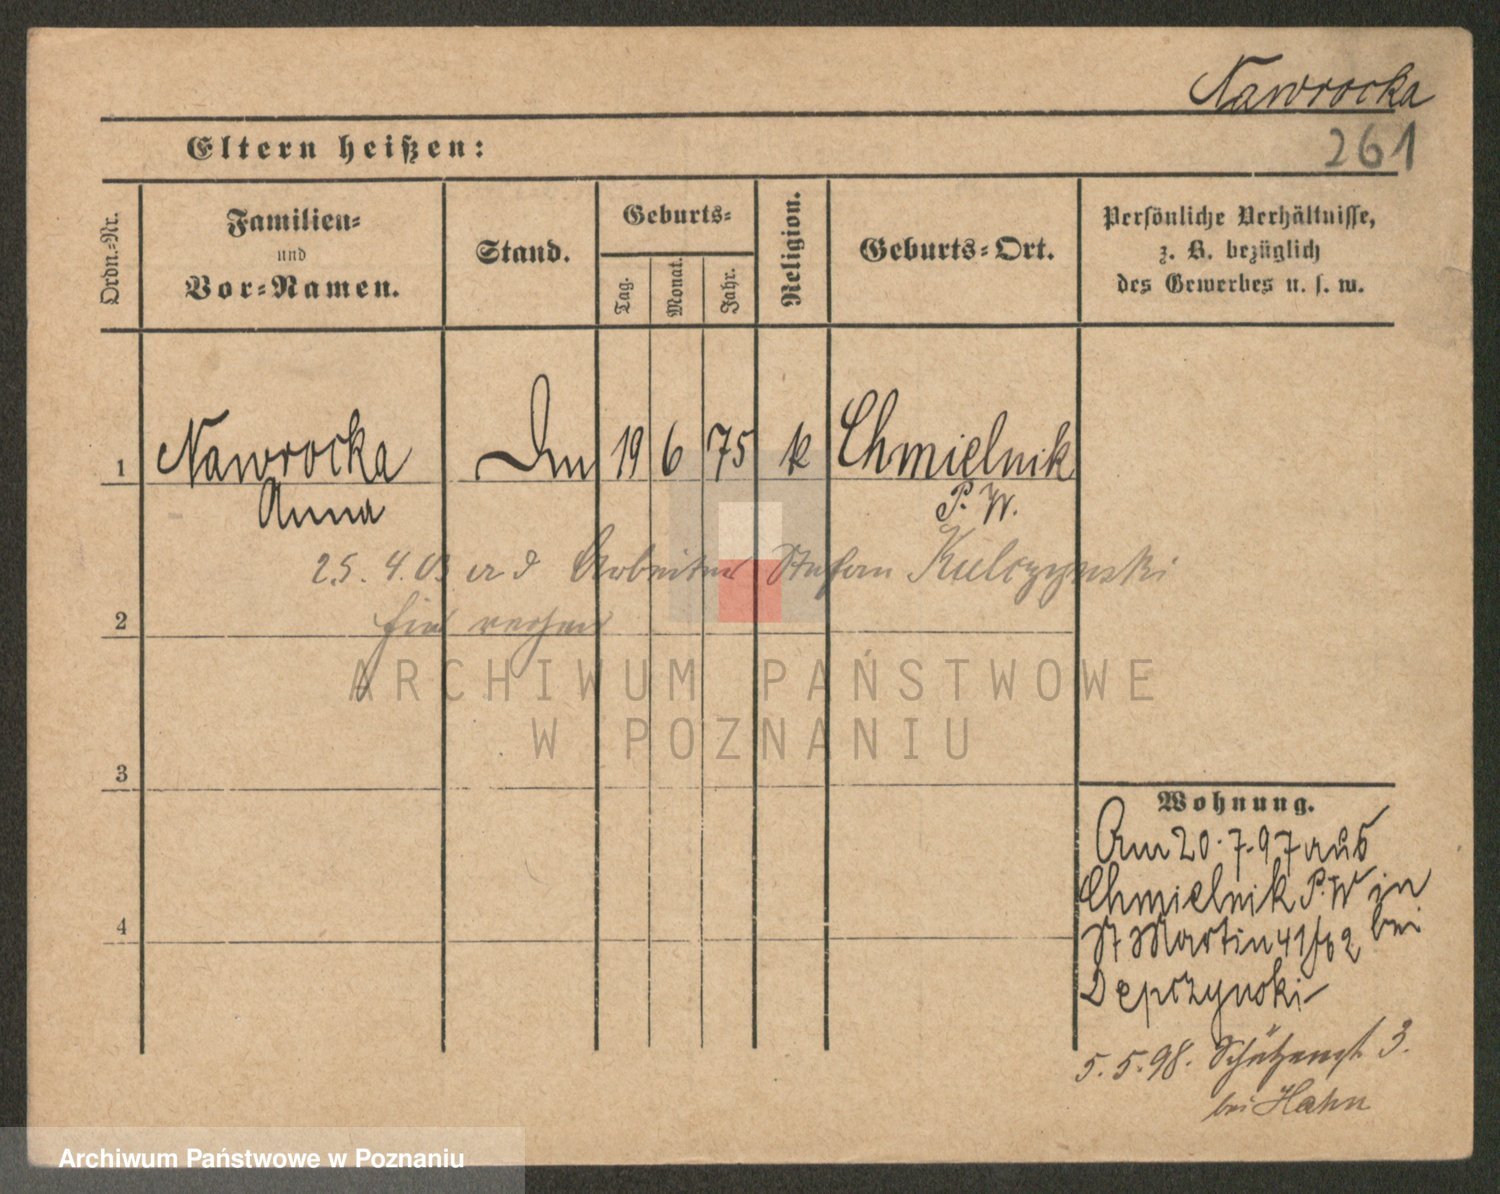 Nawrocka
261
Eltern heißen:
Ordn.-Nr.
Familien-
und
Vor-Namen.
Stand.
Geburts-
Tag.
Monat.
Jahr.
Religion.
Geburts-Ort.
Persönliche Verhältnisse,
z. B. bezüglich
des Gewerbes u. s. w.
1 Nawrocka 19 6 75 k Chmielnik
Anna P. W.
25. 4. 03 Arbeiter Stefan Kulczynski
2
ARCHIWUM PAŃSTWOWE
W POZNANIU
3
Wohnung.
Am 20.7.97 aus
Chmielnik P.W in
St Martin 41 bei
4
Depczynski
5.5.98. Schützenst 3.
bei Hahn
Archiwum Państwowe w Poznaniu